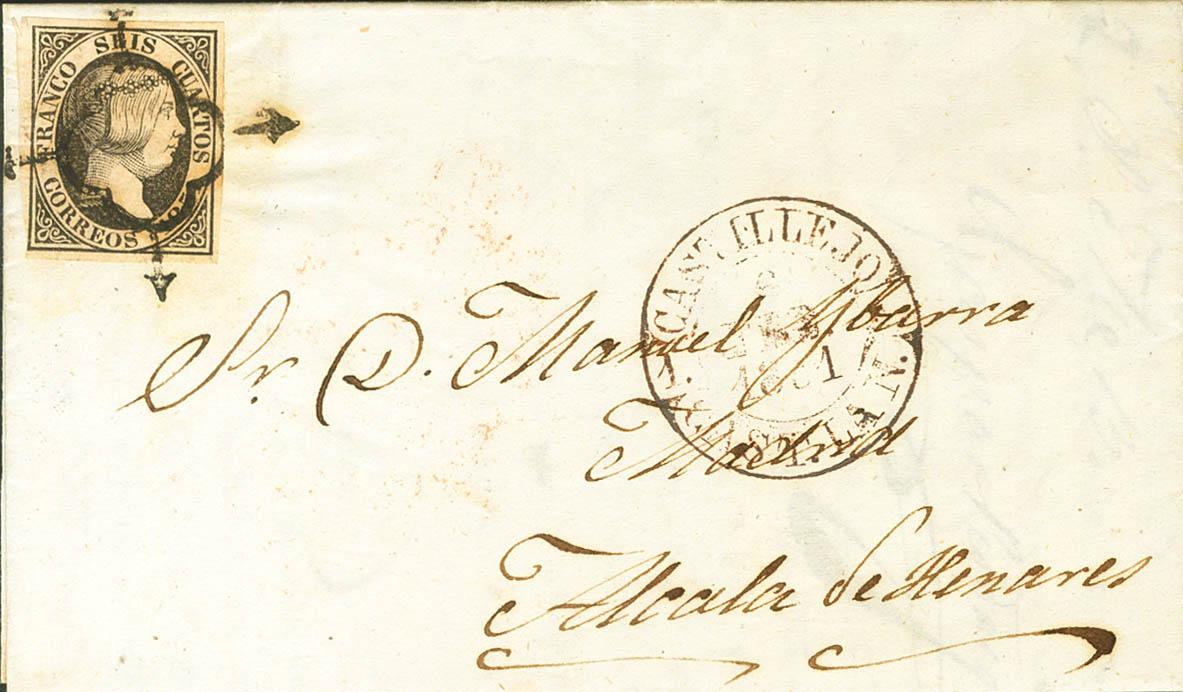 FRANCO SEIS CUARTOS
CORREOS 1851
CANTILLEJO
1851
Sr. D. Manuel Ybarra
Madrid
Alcala de Henares